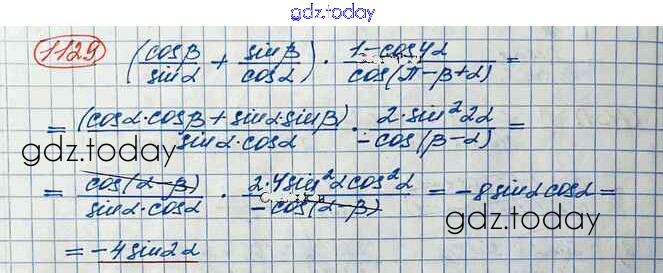 gdz.today
1129 (cosβ/sinα + sinβ/cosα) · (1-cos4α)/cos(π-β+α) =
= (cosα·cosβ+sinα·sinβ)/(sinα·cosα) · (2·sin²2α)/(-cos(β-α)) =
gdz.today
= cos(α-β)/(sinα·cosα) · (2·4sin²αcos²α)/(-cos(α-β)) = -8sinαcosα =
gdz.today
= -4sin2α